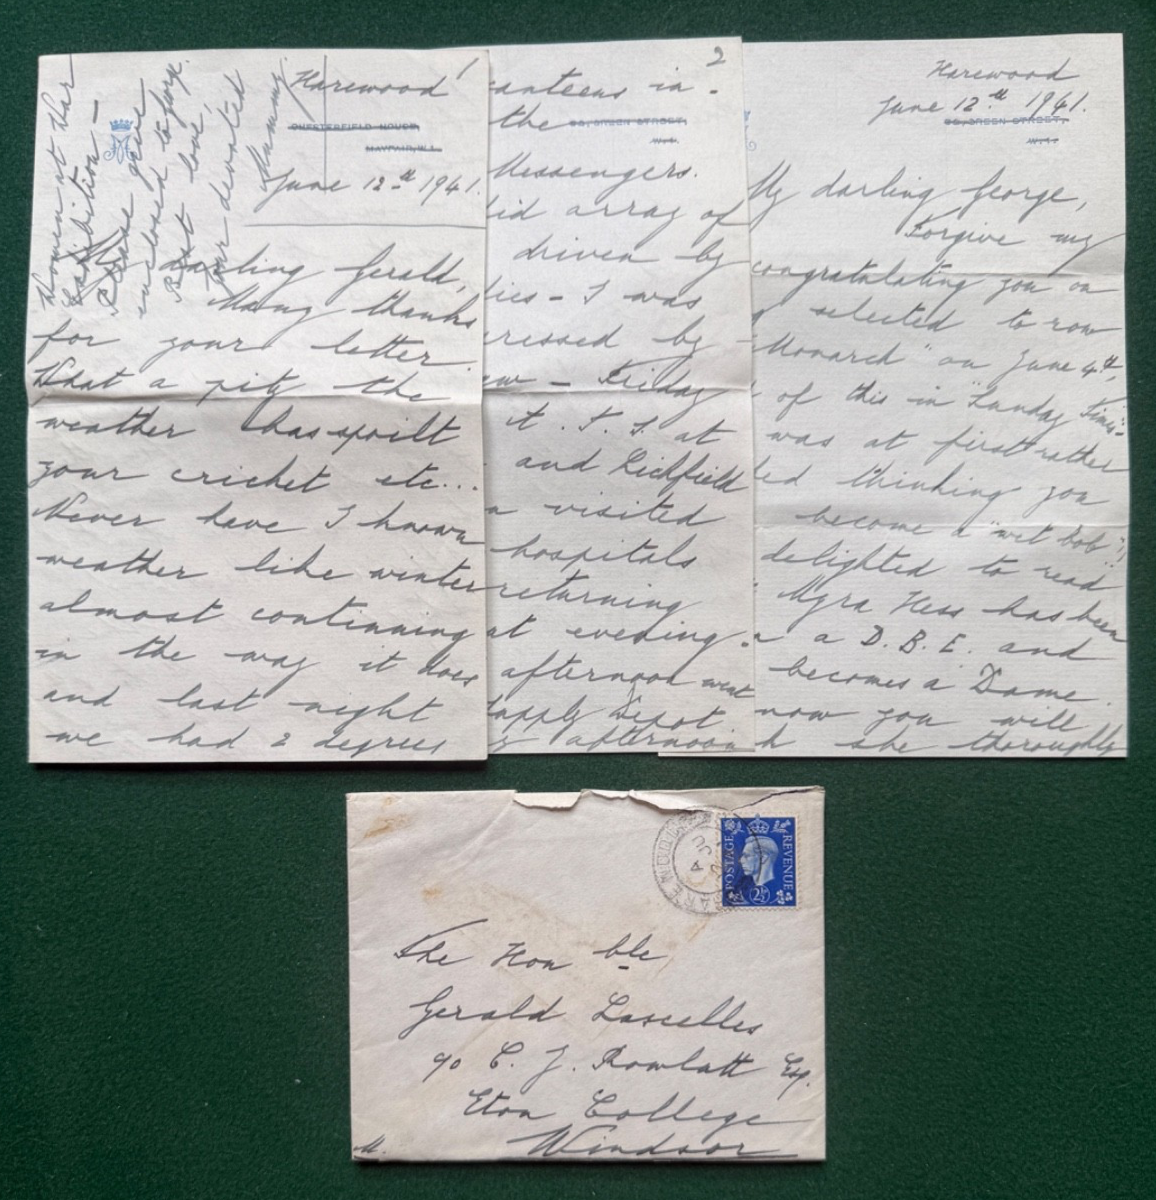 Harewood
1
CHESTERFIELD HOUSE,
MAYFAIR, W.1.
June 12th 1941.
My darling Gerald,
Many thanks
for your letter.
What a pity the
weather has spoilt
your cricket etc...
Never have I known
weather like winter
almost continuing
in the way it does
and last night
we had 2 degrees
women at Har
Exhibition –
Please give
enclosed to George.
Best love,
Your devoted
Mummy
2
canteens in
the
32, GREEN STREET,
W.1.
Messengers.
did array of
driven by
dies – I was
ressed by
ew – Friday
it. T. S. at
and Lichfield
n visited
hospitals
returning
at evening.
afternoon went
Supply Depot
afternoon
Harewood
June 12th 1941.
32, GREEN STREET,
W.1.
My darling George,
Forgive my
congratulating you on
selected to row
"Monarch" on June 4th,
of this in "Sunday Times"
was at first rather
led thinking you
become a "wet bob"!
delighted to read
Myra Hess has been
a D.B.E. and
becomes a Dame.
now you will
h she thoroughly
POSTAGE
REVENUE
2½
The Honble
Gerald Lascelles
c/o C. J. Rowlatt Esq.
Eton College
Windsor
M.